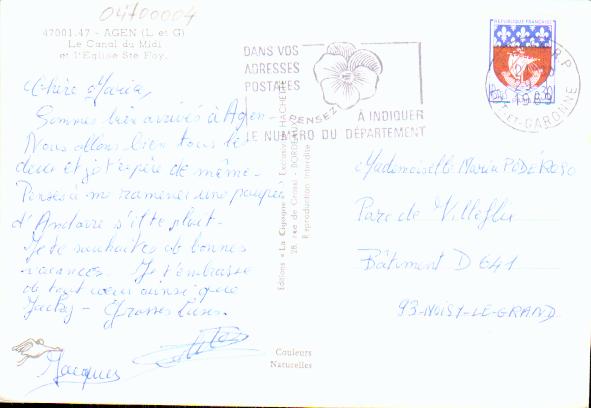 04700004
47001.47 - AGEN (L. et G)
Le Canal du Midi
et l'Eglise Ste Foy.
Chère Maria,
Sommes bien arrivés à Agen -
Nous allons bien tous les
deux et j'espère de même -
Penses à me ramener une poupée
d'Andorre s'il te plait -
Je te souhaites de bonnes
vacances. Je t'embrasse
de tout coeur ainsi que
Jacky - Grosses bises.
Jacques
DANS VOS
ADRESSES
POSTALES
PENSEZ
À INDIQUER
LE NUMÉRO DU DÉPARTEMENT
REPUBLIQUE FRANÇAISE
1969
LOT-ET-GARONNE
Editions « La Cigogne »
28, rue de Grassi - BORDEAUX
Reproduction interdite
HACHETTE
Mademoiselle Maria PODEROSO
Parc de Villeflix
Bâtiment D 641
93-NOISY-LE-GRAND
Couleurs
Naturelles